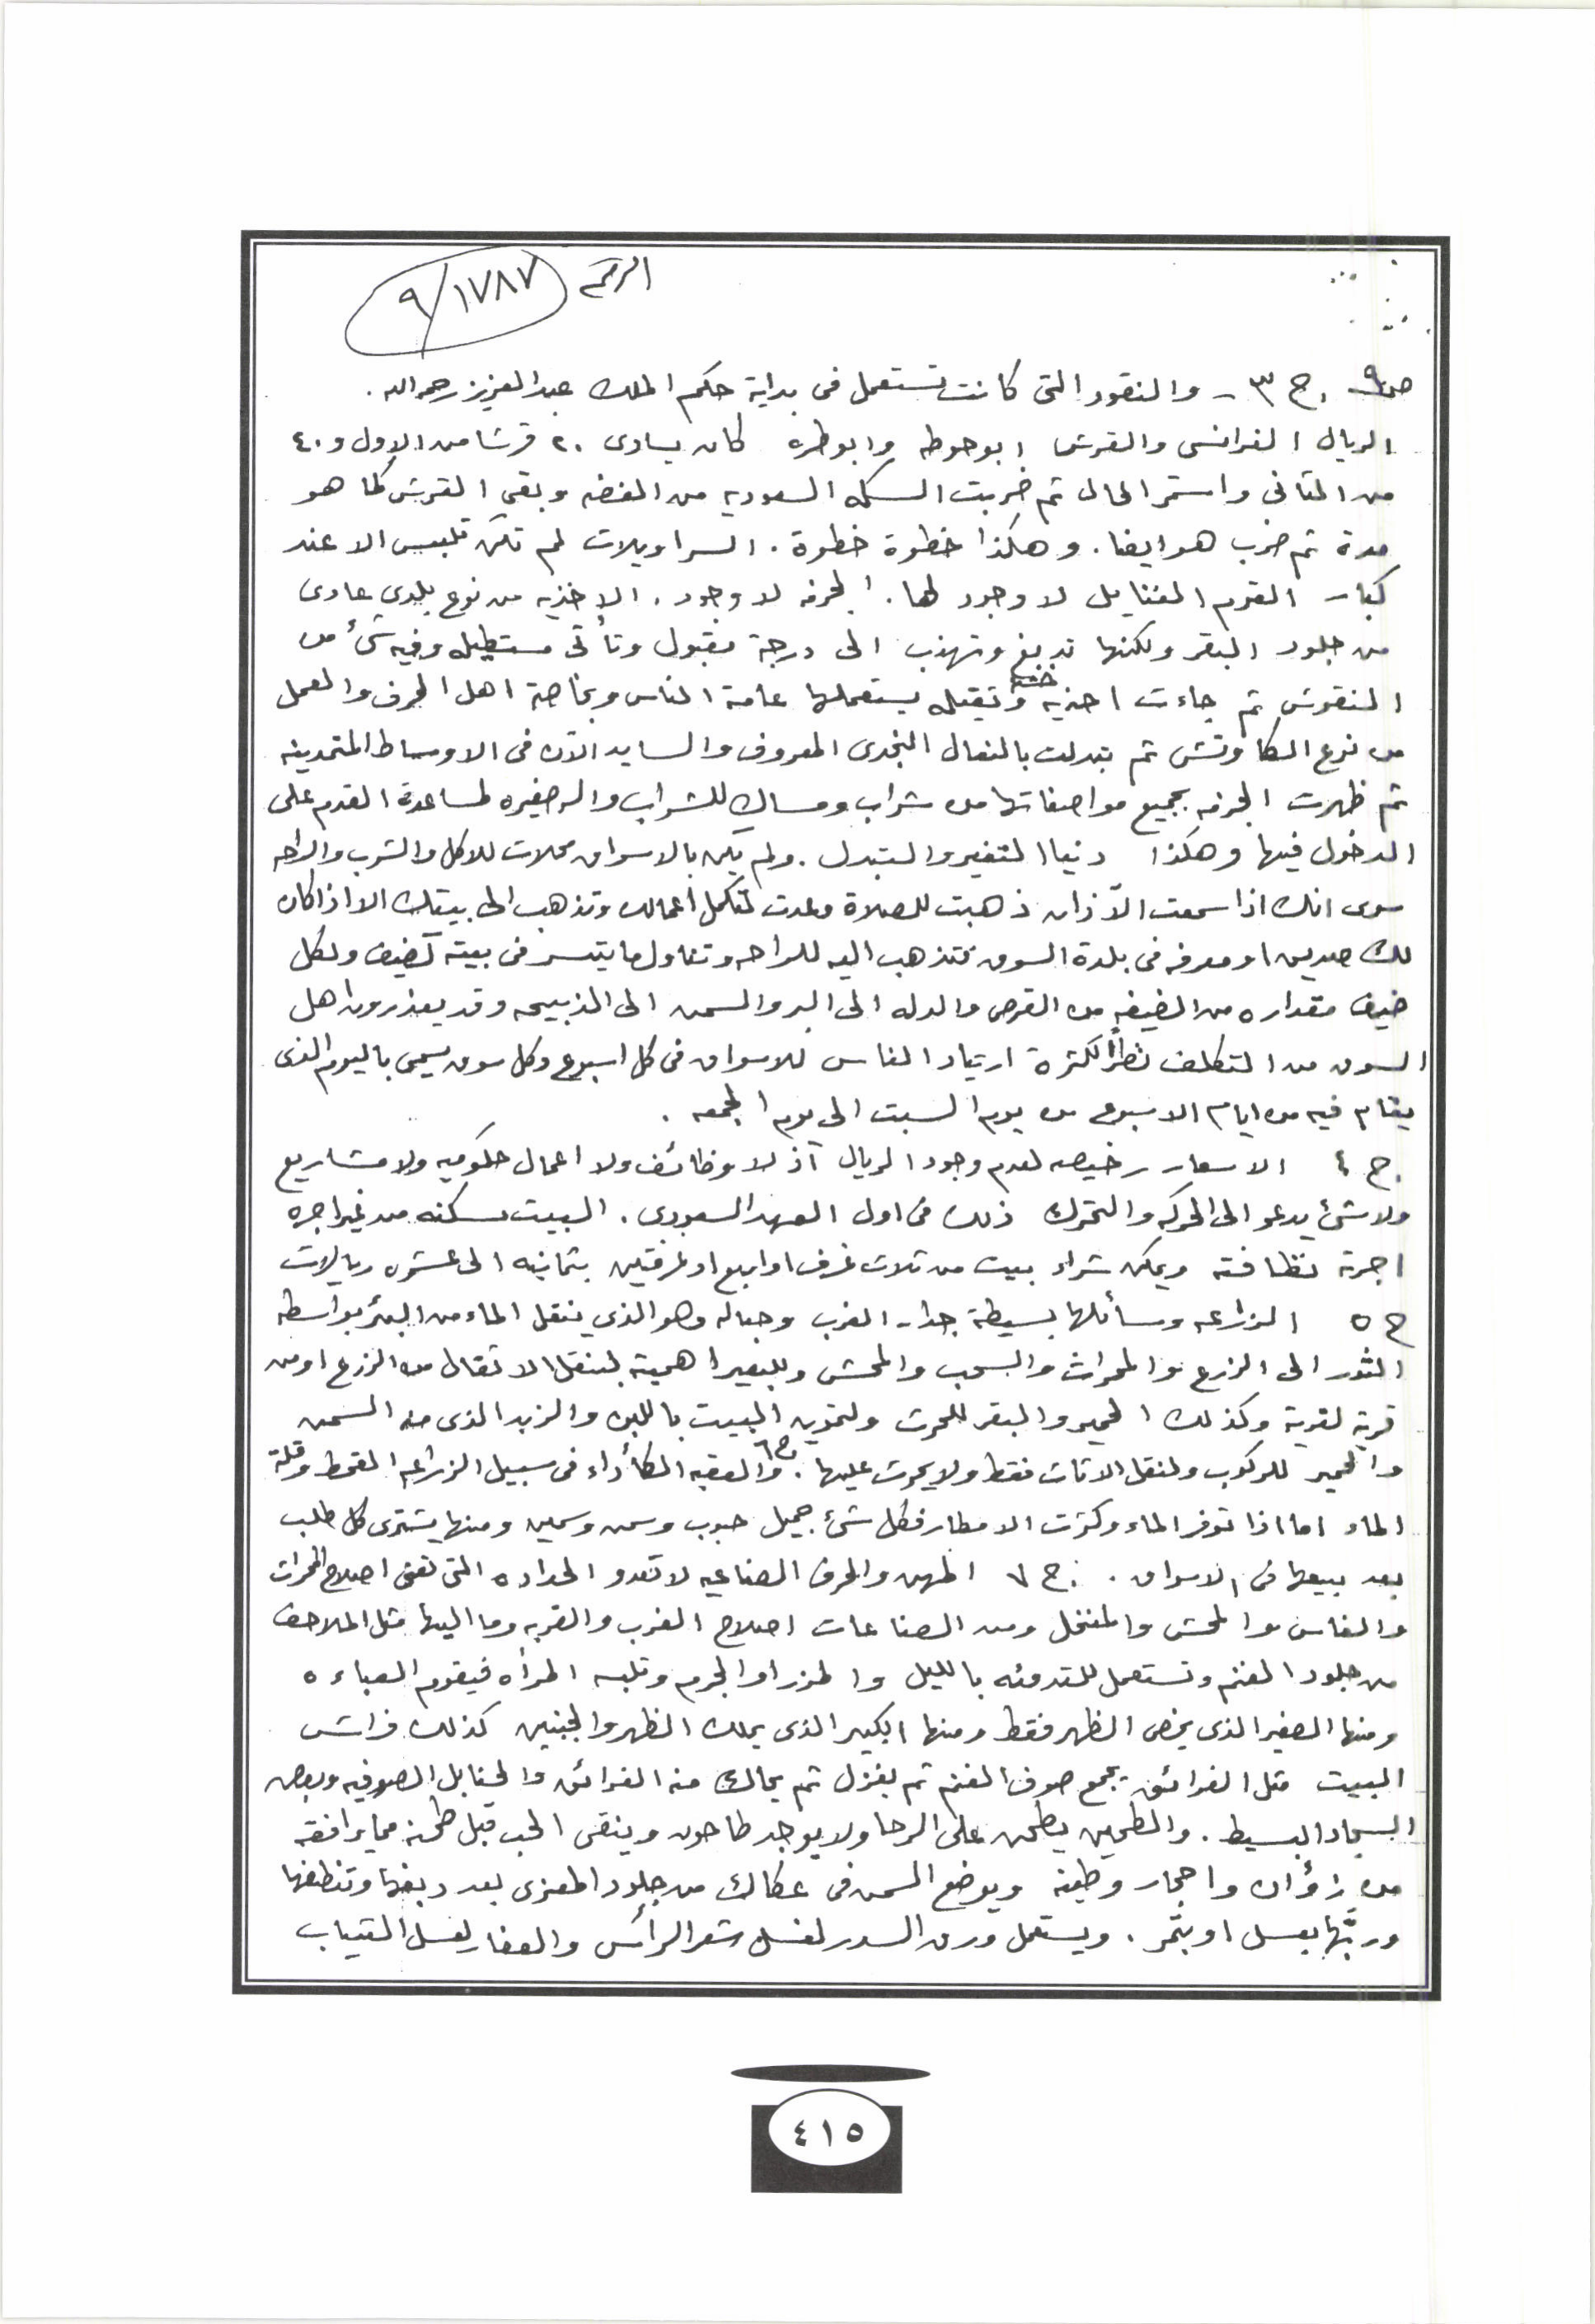 الرقم ٩/١٧٨٧
ص٩ . ج ٣ – والنقود التى كانت تستعمل فى بداية حكم الملك عبدالعزيز رحمه الله .
الريال الفرانسى والقرش ابوحوطه وابوطره كان يساوى ٢٠ قرشا من الاول و ٤٠
من الثانى واستمر الحال ثم ضربت السكه السعوديه من الفضه وبقى القرش كما هو
مدة ثم ضرب هو ايضا . وهكذا خطوة خطوة . السراويلات لم تكن تلبس الا عند
كبار القوم الفنايل لا وجود لها . الجزمه لا وجود . الاحذيه من نوع بلدى عادى
من جلود البقر ولكنها تدبغ وتهذب الى درجة مقبول وتأتى مستطيله وفيه شئ من
النقوش ثم جاءت احذيه وثقيله يستعملها عامة الناس وبخاصة اهل الحرف والعمل
من نوع الكاوتش ثم تبدلت بالنعال النجدى المعروف والسايد الآن فى الاوساط المتمدينه
ثم ظهرت الجزمه بجميع مواصفاتها من شراب ومساك للشراب والرصغيره لمساعدة القدم على
الدخول فيها وهكذا دنيا التغير والتبدل . ولم يكن بالاسواق محلات للاكل والشرب والراحه
سوى انك اذا سمعت الآذان ذهبت للصلاة وعدت لتكمل اعمالك وتذهب الى بيتك الا اذا كان
لك صديق او معرفه فى بلدة السوق فتذهب اليه للراحه وتناول ما يتيسر فى بيته كضيف ولكل
ضيف مقداره من الضيفه من القرص والدله الى البر والسمن الى الذبيحه وقد يعذرون اهل
السوق من التكلف نظراً لكثرة ارتياد الناس للاسواق فى كل اسبوع وكل سوق يسمى باليوم الذى
يقام فيه من ايام الاسبوع من يوم السبت الى يوم الجمعه .
ج ٤ الاسعار رخيصه لعدم وجود الريال آذ لا وظائف ولا اعمال حكوميه ولا مشاريع
ولا شئ يدعو الى الحركه والتحرك ذلك فى اول العهد السعودى . البيت سكنه من غير اجره
اجرته نظافته ويمكن شراء بيت من ثلاث غرف او اربع او غرفتين بثمانيه الى عشره ريالات
ج ٥ الزراعه وسائلها بسيطة جدا . الغرب وحباله وهو الذى ينقل الماء من البئر بواسطه
الثور الى الزرع والمحراث والسحب والمحش وللبعير اهميته لنقل الاثقال من الزرع او من
قرية لقرية وكذلك الحمير والبقر للحرث ولتموين البيت باللبن والزبد الذى منه السمن
والحمير للركوب ولنقل الاثاث فقط ولا يحرث عليها . ج٦ والعقبه الكأداء فى سبيل الزراعه القحط وقلة
الماء اما اذا توفر الماء وكثرت الامطار فكل شئ جميل حبوب وسمن وسمين ومنها يشترى كل طلب
بعد بيعها فى الاسواق . ج ٧ المهن والحرف الصناعيه لا تعدو الحداده التى تعنى اصلاح المحراث
والفاس والمحش والمنخل ومن الصناعات اصلاح الغرب والقربه وما اليها مثل الملاحف
من جلود الغنم وتستعمل للتدفئه بالليل والمزر او الجرم وتلبسه المرأه فيقوم العباءه
ومنها الصغير الذى يخص الظهر فقط ومنها الكبير الذى يملك الظهر والجنبين كذلك فراش
البيت مثل الفرائق يجمع صوف الغنم ثم يغزل ثم يحاك منه الفرائق والحنابل الصوفيه وبعض
السجاد البسيط . والطحين يطحن على الرحا ولا يوجد طاحون وينقى الحب قبل طحنه مما يرافقه
من زؤان واحجار وطينه ويوضع السمن فى عكاك من جلود المعزى بعد دبغها وتنظفها
وربّها بعسل او بتمر . ويستعمل ورق السدر لغسل شعر الرأس والعفار لغسل الثياب
٤١٥